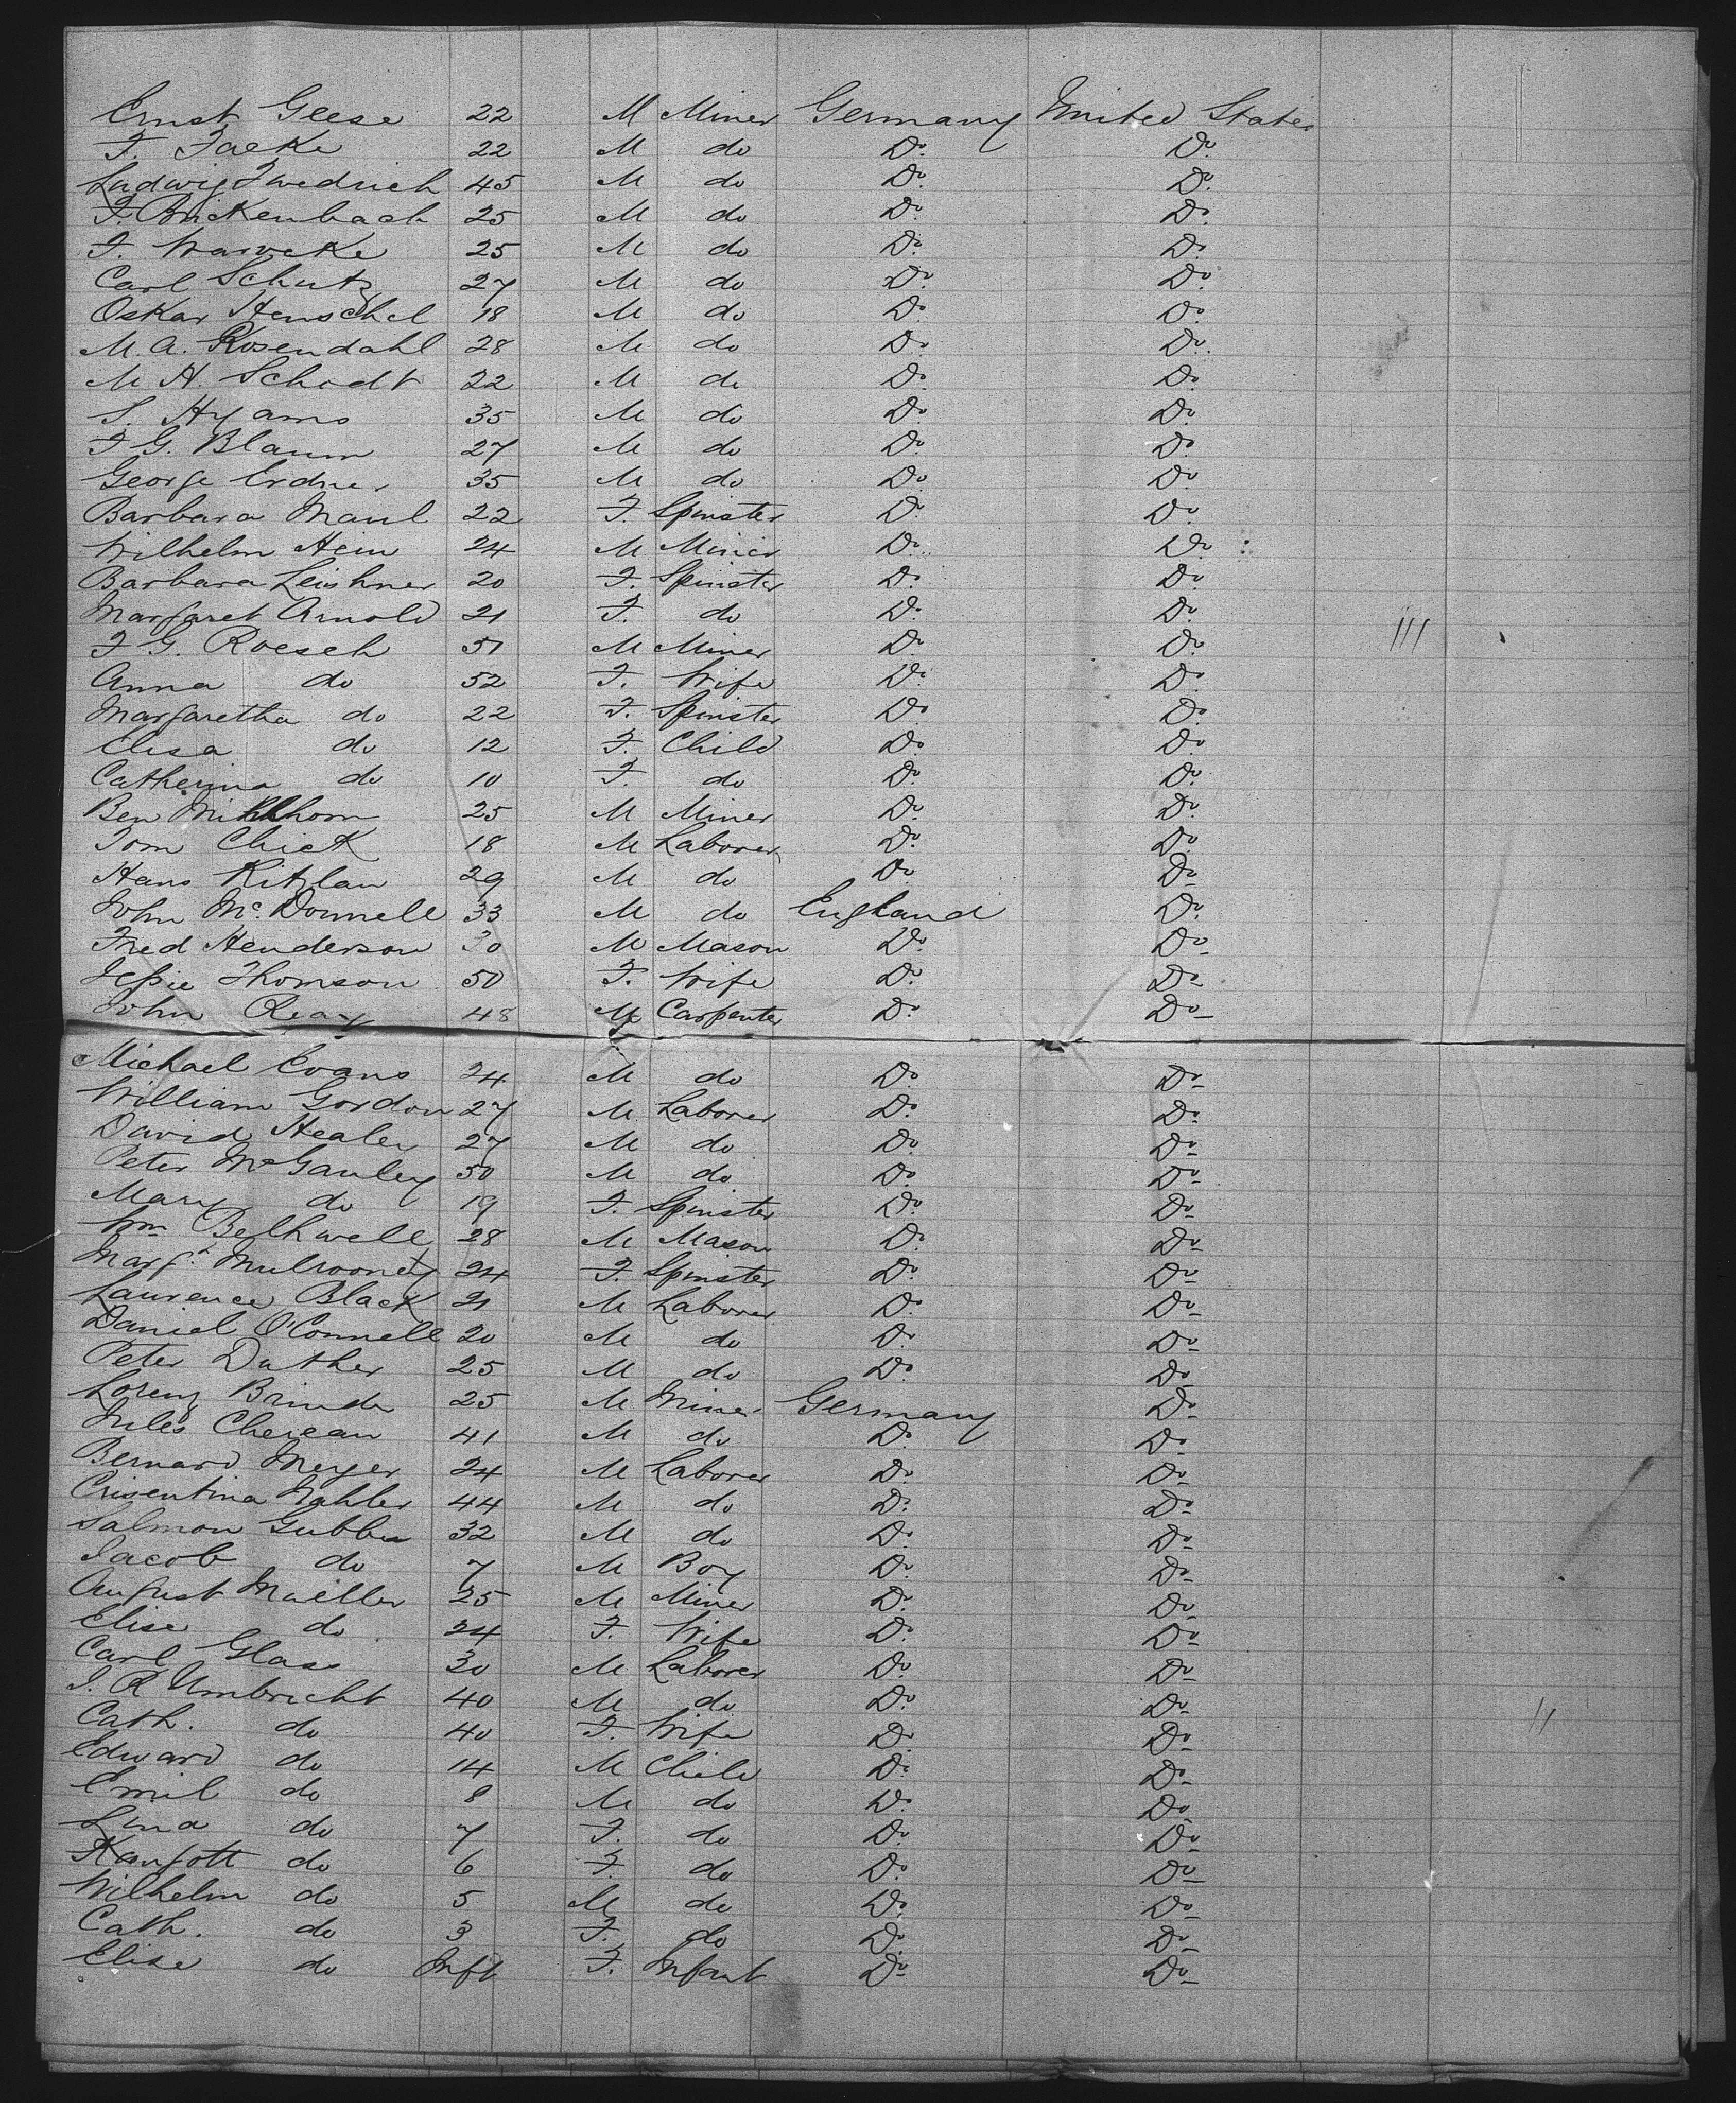 Ernst Geese 22 M Miner Germany United States
F. Facke 22 M do Do. Do.
Ludwig Fwedrich 45 M do Do. Do.
F. Brickenbach 25 M do Do. Do.
F. Warveke 25 M do Do. Do.
Carl Schutz 27 M do Do. Do.
Oskar Henschel 18 M do Do. Do.
M. A. Rosendahl 28 M do Do. Do.
M H. Schodt 22 M do Do. Do.
S. Hyams 35 M do Do. Do.
F G. Blaum 27 M do Do. Do.
George Erdner 35 M do Do Do
Barbara Maul 22 F. Spinster Do. Do.
Wilhelm Hein 24 M Miner Do. Do.
Barbara Leishner 20 F. Spinster Do. Do.
Margaret Arnold 21 F. do Do. Do.
F G. Roesch 51 M Miner Do. Do.
Anna do 52 F. Wife Do. Do.
Margaretha do 22 F. Spinster Do. Do.
Elisa do 12 F. Child Do. Do.
Catherina do 10 F. do Do. Do.
Ben 25 M Miner Do. Do.
Tom Chick 18 M Laborer Do. Do.
Hans Kitzlau 29 M do Do. Do
John Mc. Donnell 33 M do England Do.
Fred Henderson 30 M Mason Do. Do
Jessie Thomson 50 F. Wife Do. Do
John Reay 48 M Carpenter Do. Do
Michael Evans 24 M do Do. Do
William Gordon 27 M Laborer Do. Do
David Healey 27 M do Do. Do
Peter McGauley 50 M do Do. Do
Mary do 19 F. Spinster Do. Do
Wm Bethwell 28 M Mason Do. Do
Margt. Mulrooney 24 F. Spinster Do. Do
Laurence Black 21 M Laborer Do. Do
Daniel O'Connell 20 M do Do. Do
Peter Duther 25 M do Do. Do
Lorenz Brinder 25 M Miner Germany Do
Jules Chereau 41 M do Do. Do
Bernard Meyer 24 M Laborer Do. Do
Crisentina Mahler 44 M do Do. Do
Salmon Gubber 32 M do Do. Do
Jacob do 7 M Boy Do. Do
August Mueller 25 M Miner Do. Do
Elise do 24 F. Wife Do. Do
Carl Glass 30 M Laborer Do. Do
J. R Umbricht 40 M do Do. Do
Cath. do 40 F. Wife Do. Do
Edward do 14 M Child Do. Do
Emil do 8 M do Do. Do
Lina do 7 F. do Do. Do
do 6 F. do Do. Do
Wilhelm do 5 M do Do. Do
Cath. do 3 F. do Do. Do
Elise do Inft F. Infant Do Do